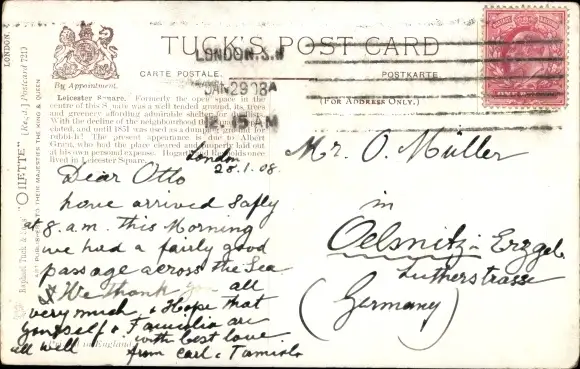 LONDON.
TUCK'S POST CARD
CARTE POSTALE.
POSTKARTE.
By Appointment.
(FOR ADDRESS ONLY.)
LONDON.S.W
JAN 29 08
12.15 AM
ONE PENNY
Leicester Square. Formerly the open space in the
centre of this Square was a well tended ground, its trees
and greenery affording admirable shelter for
With the decline of the
and until 1851 was used as a dumping ground for
rubbish. The present appearance is due to Albert
Grant, who had the place cleared and properly laid out
at his own personal expense. Hogarth and Reynolds once
lived in Leicester Square.
"OILETTE" [Regd.] Postcard 7213
Raphael Tuck & Sons'
ART PUBLISHERS TO THEIR MAJESTIES THE KING & QUEEN
London
28.1.08.
Dear Otto
have arrived safly
at 8.a.m. this Morning
we had a fairly good
passage across the Sea
We thank you all
very much, & Hope that
yourself & Familia are
all well with best love
from Carl &
in England
Mr. O. Müller
in
Oelsnitz i Erzgeb
Lutherstrasse
(Germany)